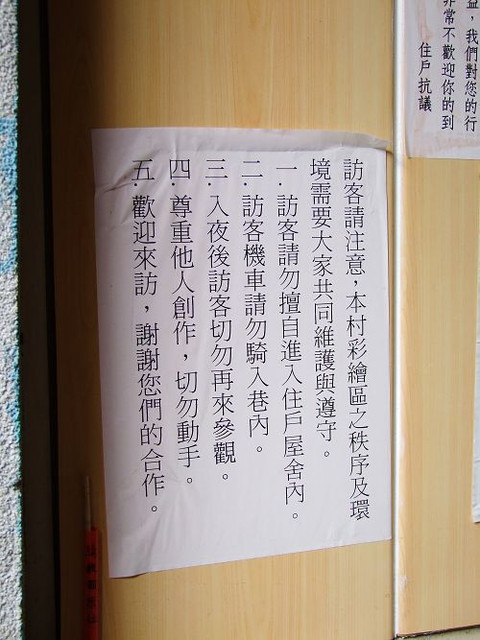 訪客請注意，本村彩繪區之秩序及環
境需要大家共同維護與遵守。
一．訪客請勿擅自進入住戶屋舍內。
二．訪客機車請勿騎入巷內。
三．入夜後訪客切勿再來參觀。
四．尊重他人創作，切勿動手。
五．歡迎來訪，謝謝您們的合作。
，我們對您的行
非常不歡迎你的到
住戶抗議